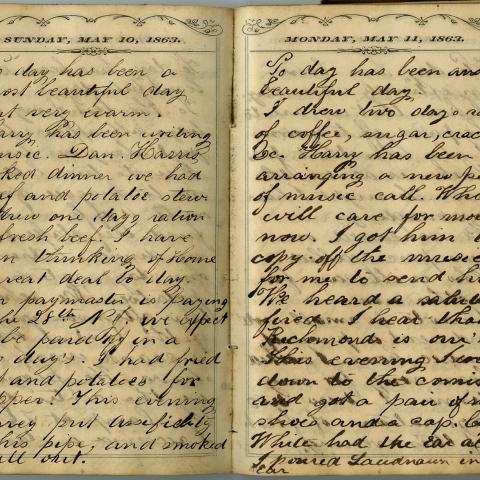 SUNDAY, MAY 10, 1863.
day has been a
ost beautiful day
t very warm.
arry has been writing
usic. Dan. Harris
ked dinner we had
ef and potatoe stew.
drew one days ration
fresh beef. I have
n thinking of home
reat deal to day.
paymaster is paying
he 28th N.Y. we expect
be paid off in a
day's. I had fried
t and potatoes for
pper. This evening
put
his pipe, and smoked
all out.
MONDAY, MAY 11, 1863.
To day has been ano
beautiful day.
I drew two days ra
of coffee, sugar, crac
&c. Harry has been
arranging a new pe
of music call. Whe
will care for mo
now. I got him
copy off the music
for me to send h
We heard a salut
fired. I hear tha
Richmond is our
This evening I we
down to the comis
and got a pair of
shoes and a cap.
White had the ear ac
I poured Laudnaum in
ear